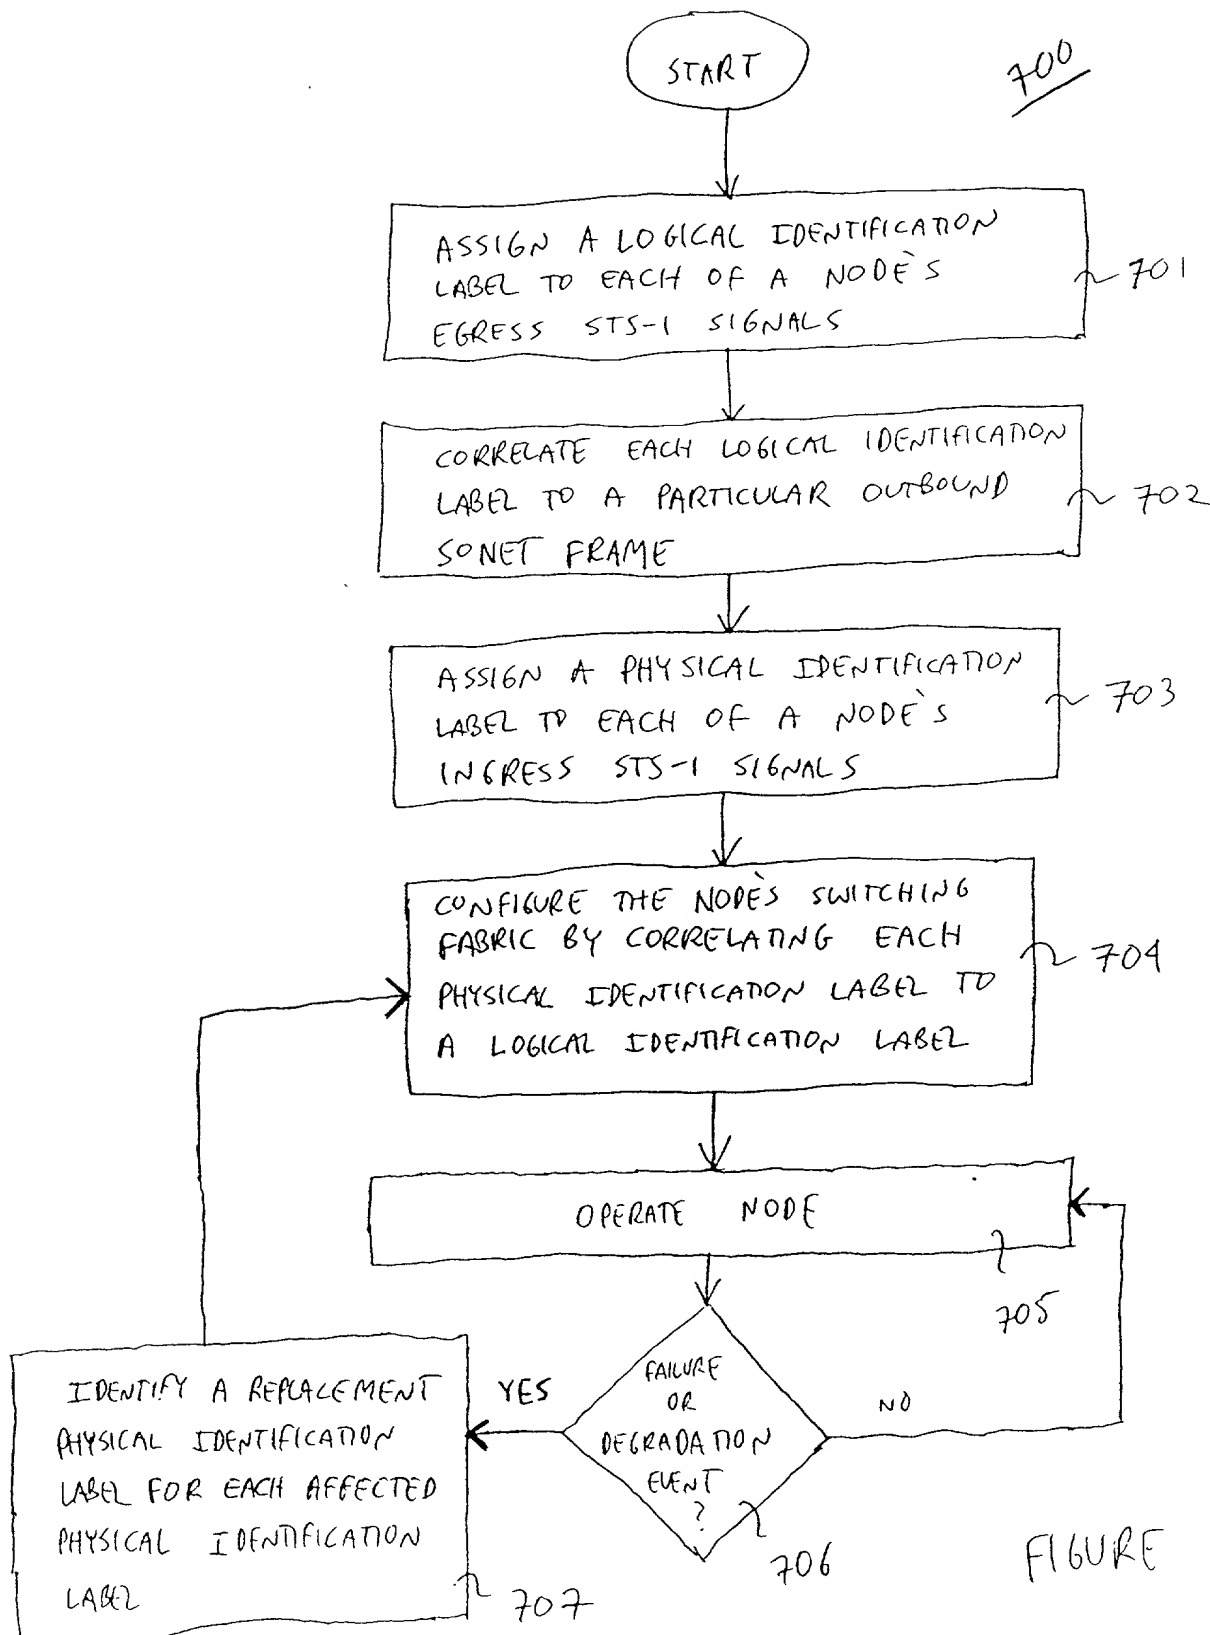 START
700
ASSIGN A LOGICAL IDENTIFICATION
LABEL TO EACH OF A NODE'S
EGRESS STS-1 SIGNALS
701
CORRELATE EACH LOGICAL IDENTIFICATION
LABEL TO A PARTICULAR OUTBOUND
SONET FRAME
702
ASSIGN A PHYSICAL IDENTIFICATION
LABEL TO EACH OF A NODE'S
INGRESS STS-1 SIGNALS
703
CONFIGURE THE NODE'S SWITCHING
FABRIC BY CORRELATING EACH
PHYSICAL IDENTIFICATION LABEL TO
A LOGICAL IDENTIFICATION LABEL
704
OPERATE NODE
705
FAILURE
OR
DEGRADATION
EVENT
?
706
YES
NO
IDENTIFY A REPLACEMENT
PHYSICAL IDENTIFICATION
LABEL FOR EACH AFFECTED
PHYSICAL IDENTIFICATION
LABEL
707
FIGURE